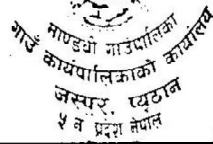 माण्डवी गाउँपालिका
गाउँ कार्यपालिकाको कार्यालय
जस्पुर, प्यूठान
५ नं प्रदेश नेपाल